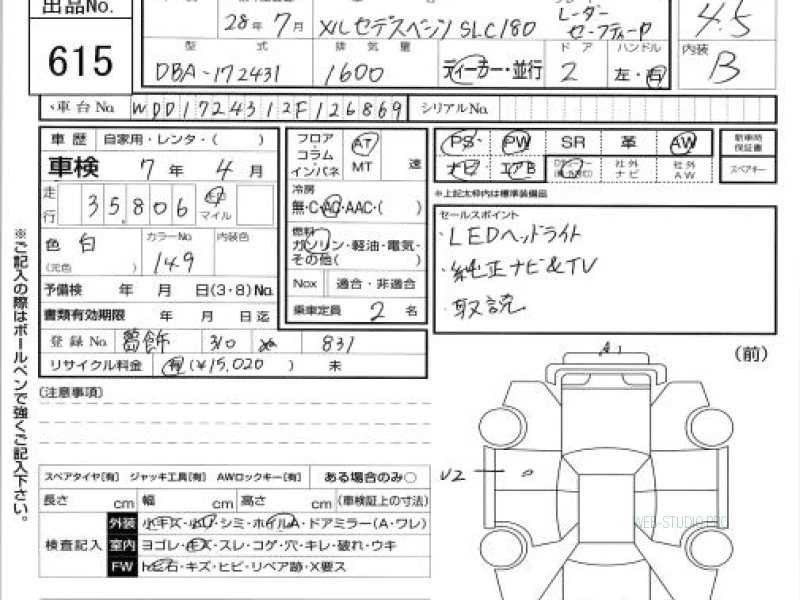 出品No.
615
28年 7月
メルセデスベンツ SLC180
レーダーセーフティーP
4.5
型式
排気量
ドア
ハンドル
内装
DBA-172431
1600
ディーラー・並行
2
左・右
B
車台No.
WDD1724312F126869
シリアルNo.
車歴 自家用・レンタ・( )
フロア
コラム
インパネ
AT
MT
速
PS
PW
SR
革
AW
新車時保証書
車検 7年 4月
ナビ
エアB
社外ナビ
社外AW
スペアキー
走行 35,806
マイル
冷房
無・C・AC・AAC・( )
※上記太枠内は標準装備品
色 白
カラーNo.
149
内装色
(元色 )
燃料
ガソリン・軽油・電気・
その他( )
セールスポイント
・LEDヘッドライト
・純正ナビ&TV
・取説
予備検 年 月 日(3・8)No.
Nox 適合・非適合
書類有効期限 年 月 日迄
乗車定員 2 名
登録No. 葛飾 310 ぬ 831
リサイクル料金 有(¥15,020 ) 未
A1
(前)
(注意事項)
※ご記入の際はボールペンで強くご記入下さい。
スペアタイヤ[有] ジャッキ工具[有] AWロックキー[有] ある場合のみ○
長さ cm 幅 cm 高さ cm (車検証上の寸法)
検査記入
外装 小キズ・小凹・シミ・ホイルA・ドアミラー(A・ワレ)
室内 ヨゴレ・キズ・スレ・コゲ・穴・キレ・破れ・ウキ
FW トビ石・キズ・ヒビ・リペア跡・X要ス
U2
WEB-STUDIO.PRO